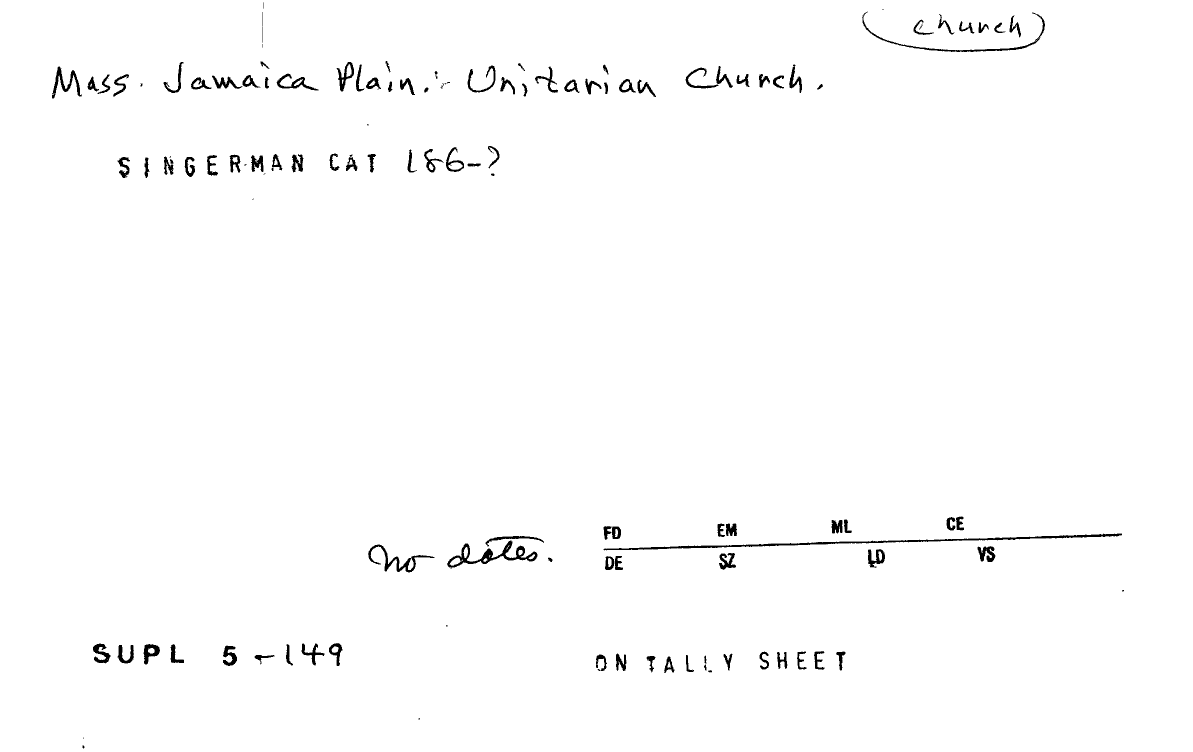 church
Mass. Jamaica Plain.:- Unitarian Church.
SINGERMAN CAT 186-?
FD EM ML CE
no dates.
DE SZ LD VS
SUPL 5-149
ON TALLY SHEET